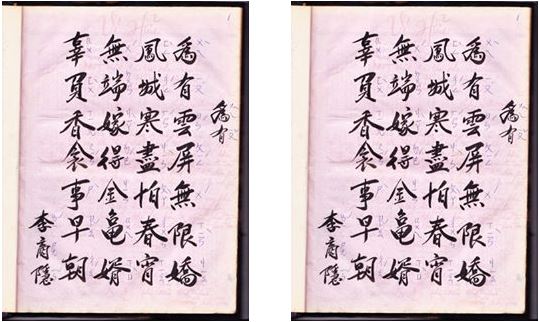 為有
為有雲屏無限嬌
鳳城寒盡怕春宵
無端嫁得金龜婿
辜負香衾事早朝
李商隱
為有
為有雲屏無限嬌
鳳城寒盡怕春宵
無端嫁得金龜婿
辜負香衾事早朝
李商隱